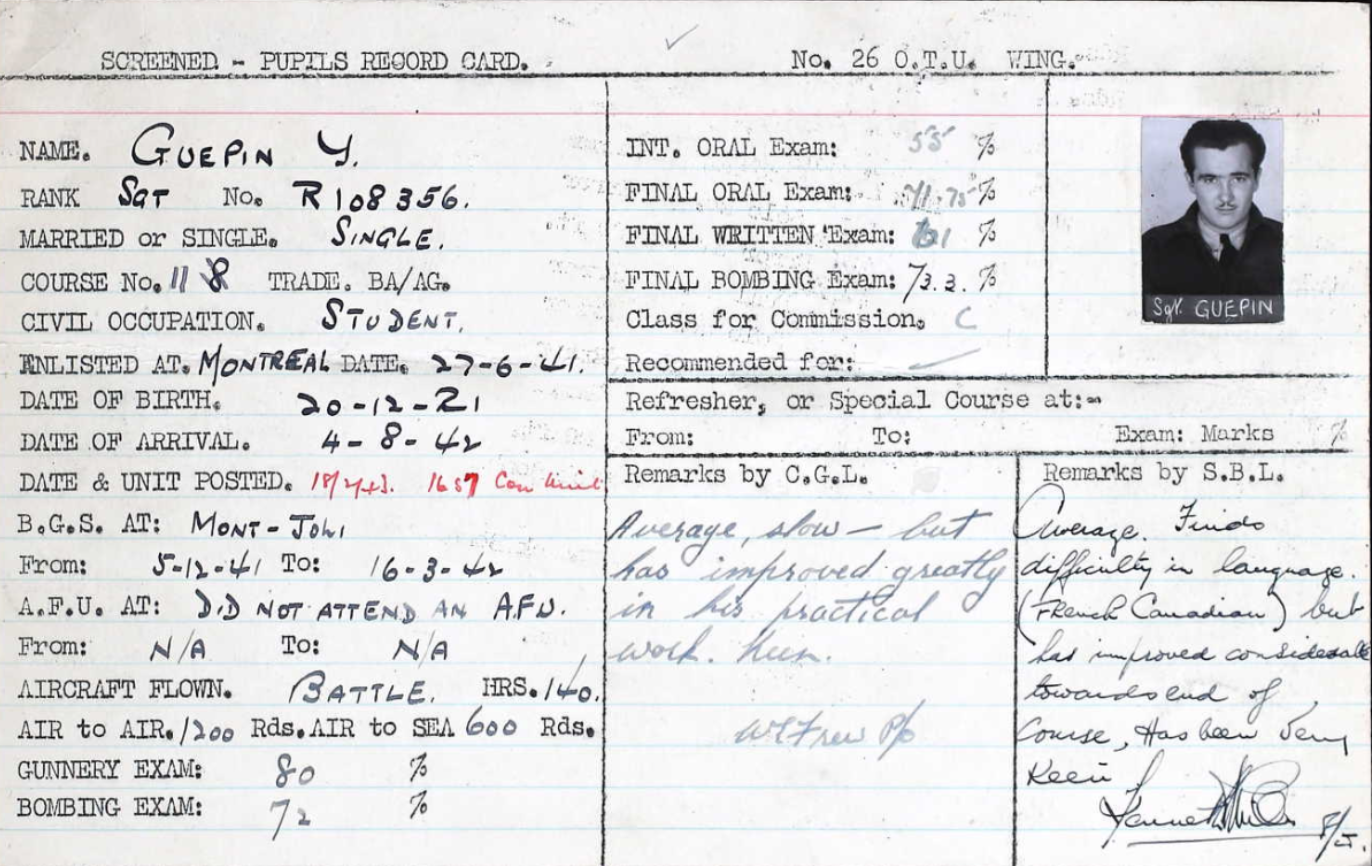 SCREENED - PUPILS RECORD CARD.
No. 26 O.T.U. WING.
NAME. GUEPIN Y.
RANK SGT No. R108356.
MARRIED or SINGLE. SINGLE.
COURSE No. 11 8 TRADE. BA/AG.
CIVIL OCCUPATION. STUDENT.
ENLISTED AT. MONTREAL DATE. 27-6-41.
DATE OF BIRTH. 20-12-21
DATE OF ARRIVAL. 4-8-42
DATE & UNIT POSTED. 1657 Con Unit
B.G.S. AT: MONT-JOLI
From: 5-12-41 To: 16-3-42
A.F.U. AT: DID NOT ATTEND AN A.F.U.
From: N/A To: N/A
AIRCRAFT FLOWN. BATTLE. HRS. 140.
AIR to AIR. 1200 Rds. AIR to SEA 600 Rds.
GUNNERY EXAM: 80 %
BOMBING EXAM: 72 %
INT. ORAL Exam: 55 %
FINAL ORAL Exam: 71.75 %
FINAL WRITTEN Exam: 61 %
FINAL BOMBING Exam: 73.3. %
Class for Commission. C
Recommended for:
Sgt. GUEPIN
Refresher, or Special Course at:-
From: To: Exam: Marks %
Remarks by C.G.L.
Average, slow - but
has improved greatly
in his practical
work. Keen.
P/O
Remarks by S.B.L.
Average. Finds
difficulty in language.
(French Canadian) but
has improved considerable
towards end of
Course, Has been very
Keen
Kenneth